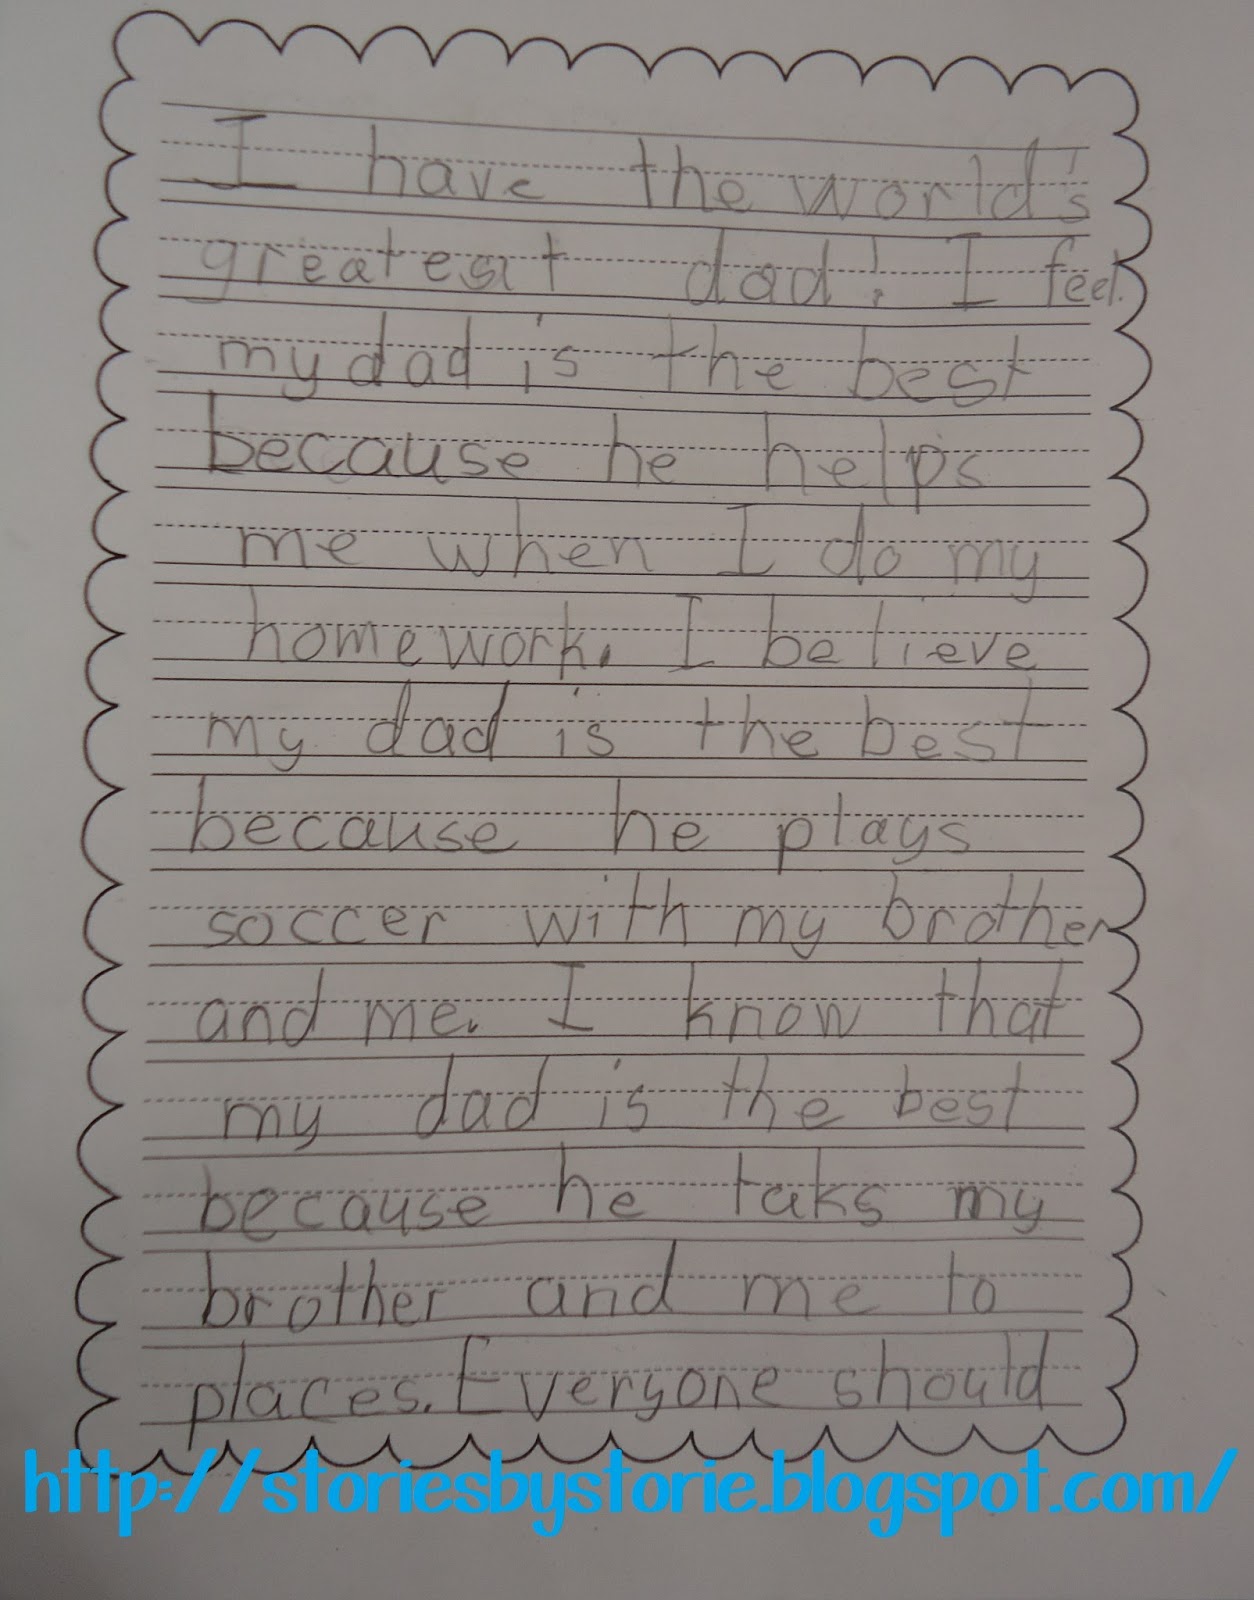 I have the world's
greatest dad! I feel
my dad is the best
because he helps
me when I do my
homework. I believe
my dad is the best
because he plays
soccer with my brother
and me. I know that
my dad is the best
because he taks my
brother and me to
places. Everyone should
http://storiesbystorie.blogspot.com/